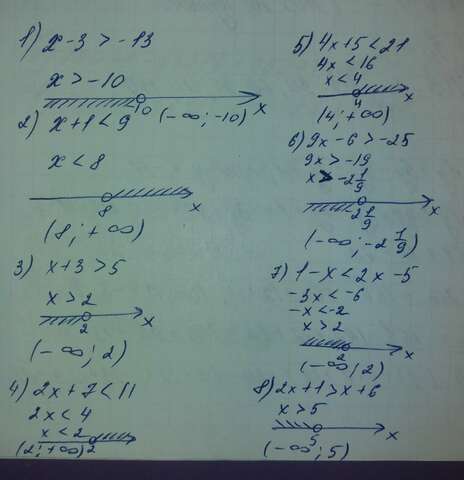 1) x-3 > -13
x > -10
10 (-∞; -10) x
2) x+1 < 9
x < 8
8 x
(8; +∞)
3) x+3 > 5
x > 2
2 x
(-∞; 2)
4) 2x+7 < 11
2x < 4
x < 2
(2; +∞) 2
5) 4x+5 < 21
4x < 16
x < 4
4 x
(4; +∞)
6) 9x-6 > -25
9x > -19
x > -2 1/9
2 1/9 x
(-∞; -2 1/9)
7) 1-x < 2x-5
-3x < -6
-x < -2
x > 2
2 x
(-∞; 2)
8) 2x+1 > x+6
x > 5
5 x
(-∞; 5)